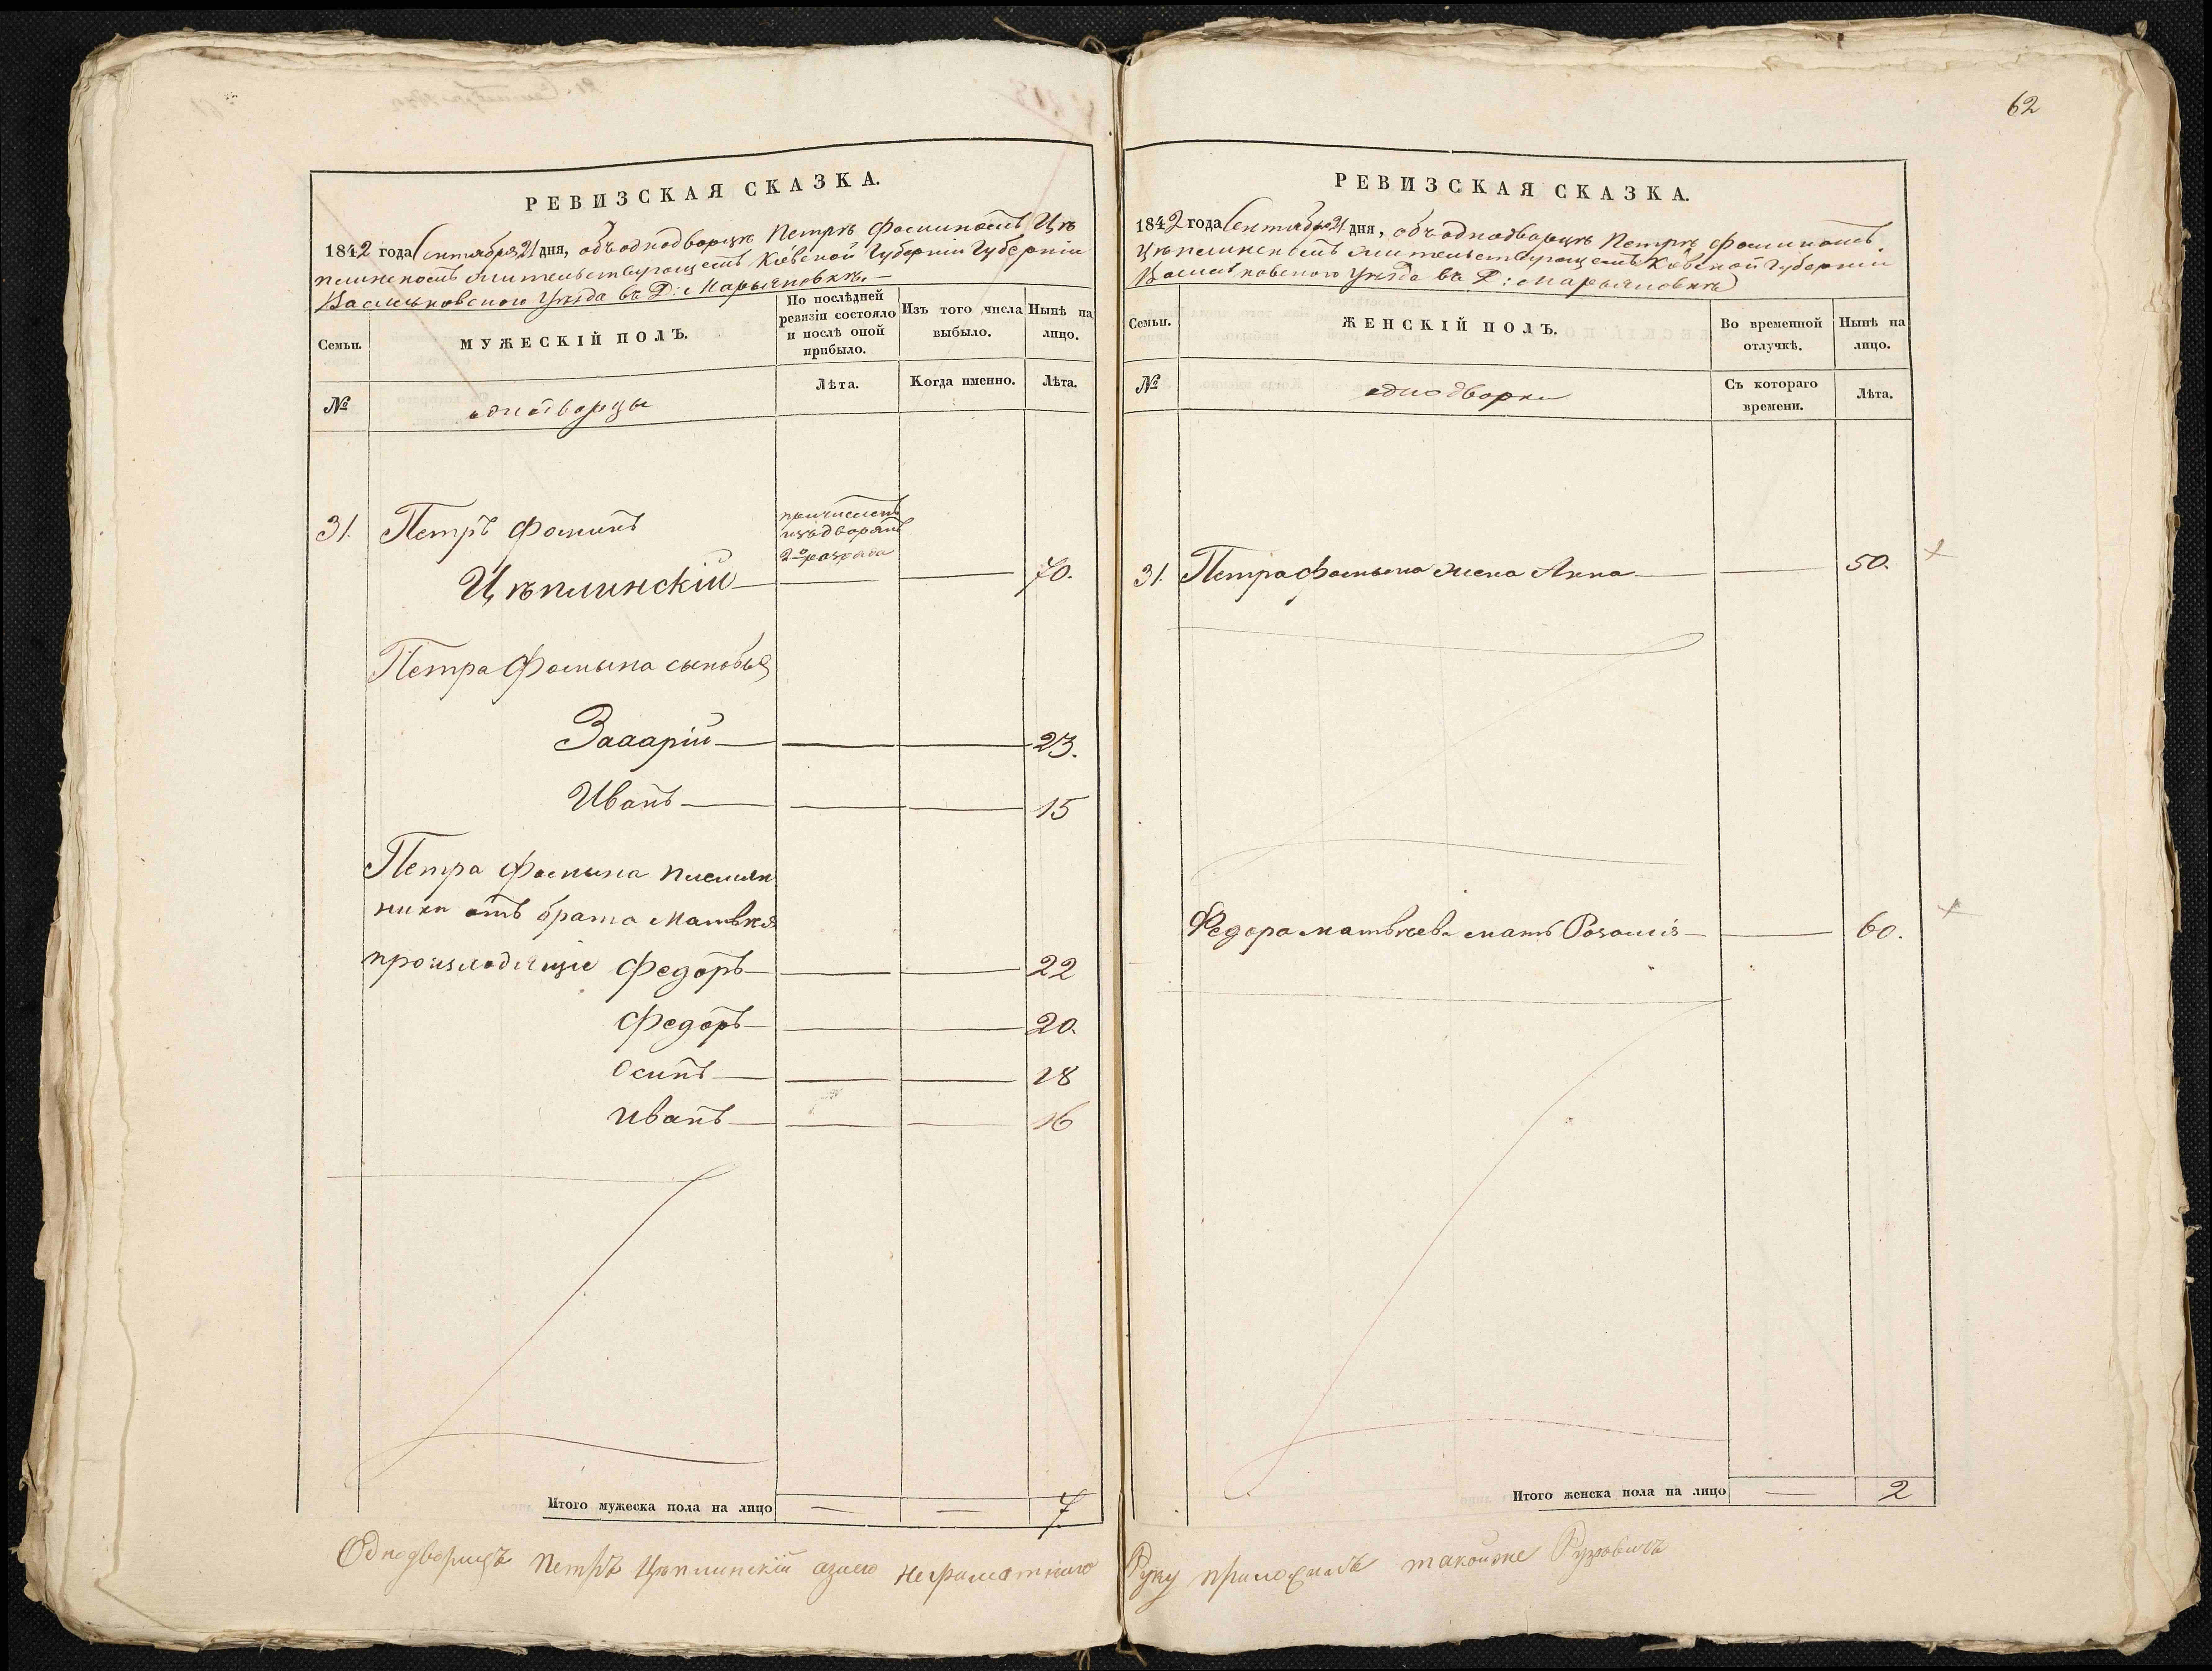 РЕВИЗСКАЯ СКАЗКА.
1842 года Сентября 21 дня, объ однодворцѣ Петрѣ Фоминомъ Цѣ
плинскомъ жительствующемъ Кіевской Губерніи Губерніи
Васильковского Уѣзда въ Д: Марьяновкѣ.
Семьи.
МУЖЕСКІЙ ПОЛЪ.
По послѣдней ревизіи состояло и послѣ оной прибыло.
Изъ того числа выбыло.
Нынѣ на лицо.
№
однодворцы
Лѣта.
Когда именно.
Лѣта.
31. Петръ Фоминъ
причисленъ
изъ дворянъ
2го разряда
Цѣплинскій — 70.
Петра Фомина сыновья
Захарій — 23.
Иванъ — 15
Петра Фомина племян
ники отъ брата Матвѣя
произходящіе Федоръ — 22
Федоръ — 20.
Осипъ — 18
Иванъ — 16
Итого мужеска пола на лицо — — 7.
Однодворецъ Петръ Цѣплинскій а за его неграмотного
62
РЕВИЗСКАЯ СКАЗКА.
1842 года Сентября 21 дня, объ однодворцѣ Петрѣ Фоминомъ
Цѣплинскомъ жительствующемъ Кіевской Губерніи
Васильковского Уѣзда въ Д: Марьяновкѣ
Семьи.
ЖЕНСКІЙ ПОЛЪ.
Во временной отлучкѣ.
Нынѣ на лицо.
№
однодворки
Съ котораго времени.
Лѣта.
31. Петра Фомина жена Анна — 50.
Федора Матвѣева мать Розалія — 60.
Итого женска пола на лицо — 2
Руку приложилъ такойже